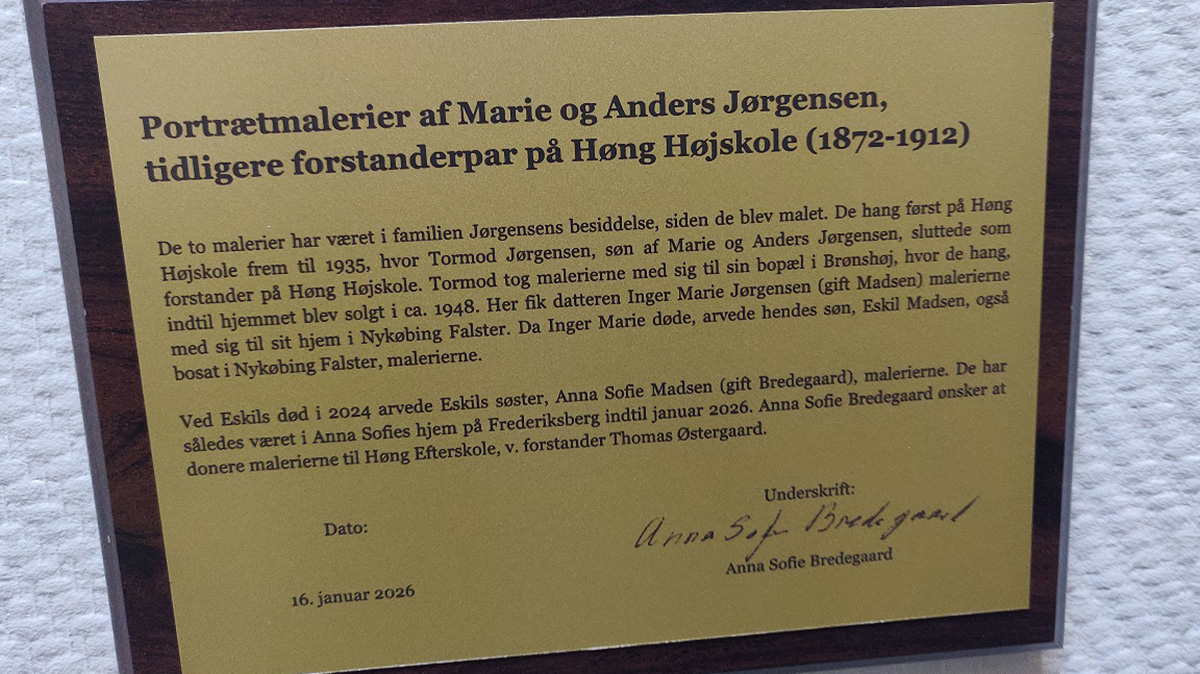 Portrætmalerier af Marie og Anders Jørgensen,
tidligere forstanderpar på Høng Højskole (1872-1912)
De to malerier har været i familien Jørgensens besiddelse, siden de blev malet. De hang først på Høng
Højskole frem til 1935, hvor Tormod Jørgensen, søn af Marie og Anders Jørgensen, sluttede som
forstander på Høng Højskole. Tormod tog malerierne med sig til sin bopæl i Brønshøj, hvor de hang,
indtil hjemmet blev solgt i ca. 1948. Her fik datteren Inger Marie Jørgensen (gift Madsen) malerierne
med sig til sit hjem i Nykøbing Falster. Da Inger Marie døde, arvede hendes søn, Eskil Madsen, også
bosat i Nykøbing Falster, malerierne.
Ved Eskils død i 2024 arvede Eskils søster, Anna Sofie Madsen (gift Bredegaard), malerierne. De har
således været i Anna Sofies hjem på Frederiksberg indtil januar 2026. Anna Sofie Bredegaard ønsker at
donere malerierne til Høng Efterskole, v. forstander Thomas Østergaard.
Dato:
Underskrift:
Anna Sofie Bredegaard
Anna Sofie Bredegaard
16. januar 2026